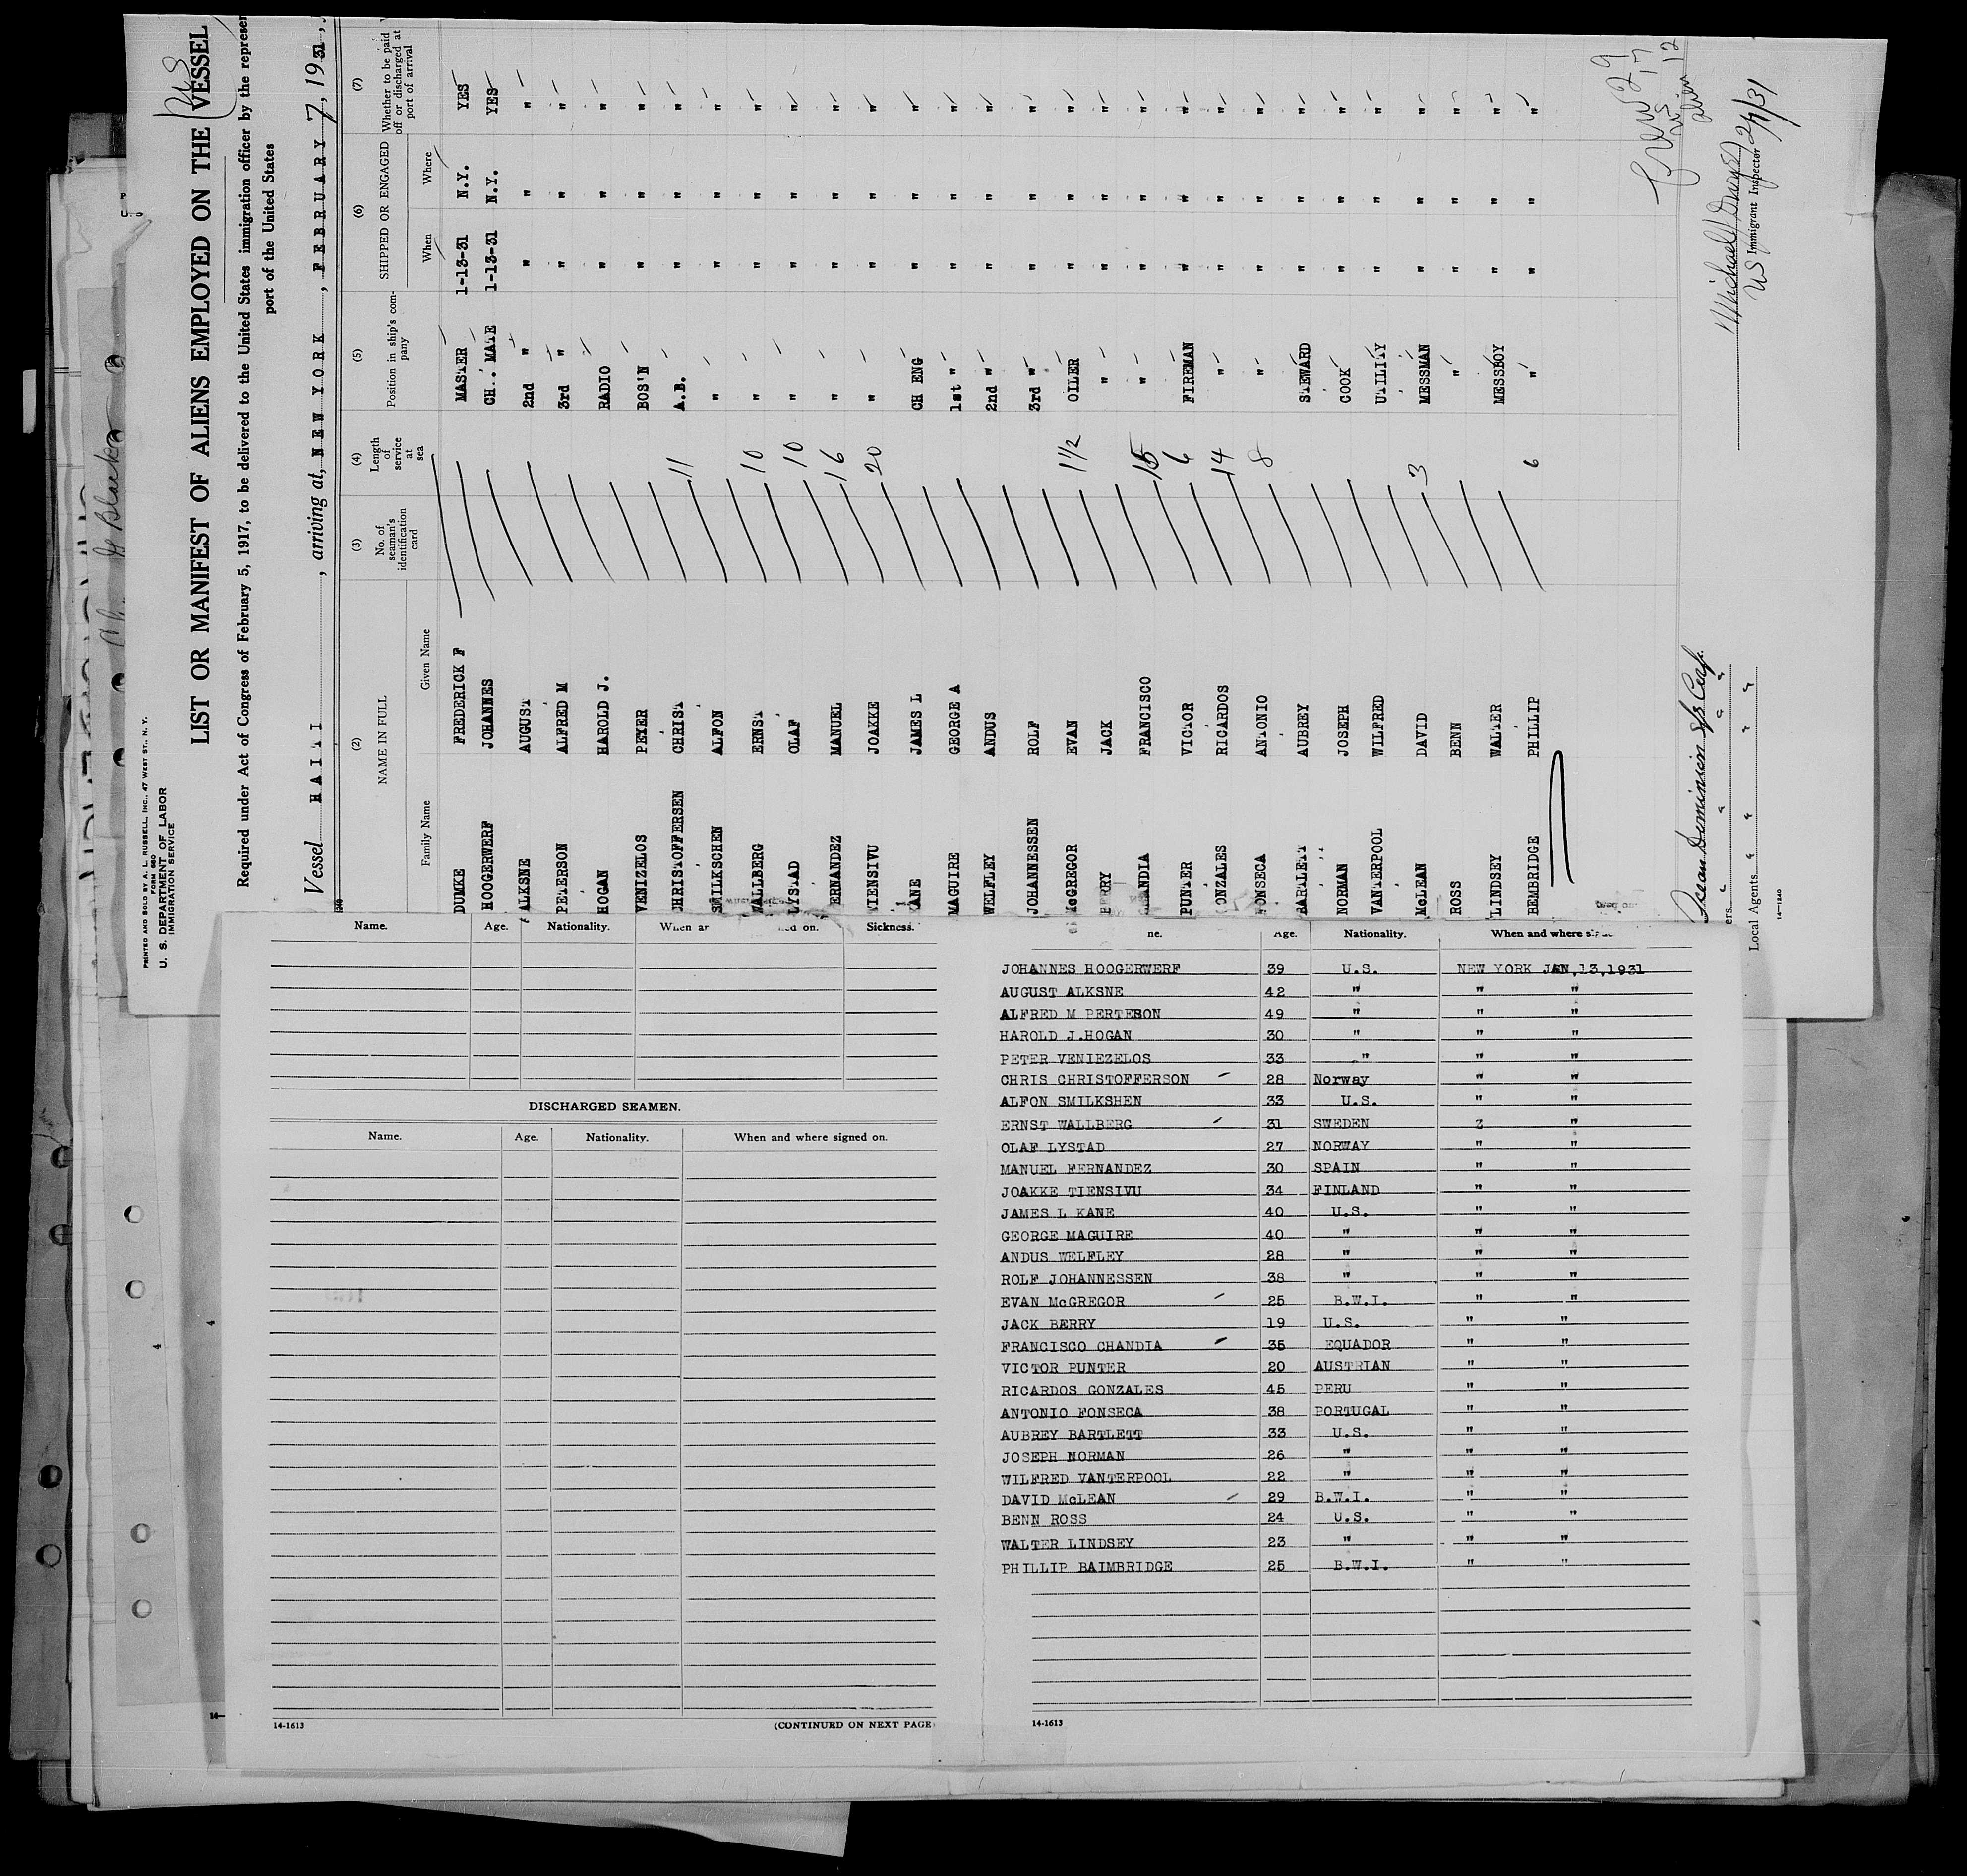 PRINTED AND SOLD BY A. L. RUSSELL, INC., 47 WEST ST., N. Y.
FORM 680
U. S. DEPARTMENT OF LABOR
IMMIGRATION SERVICE
US
LIST OR MANIFEST OF ALIENS EMPLOYED ON THE VESSEL
Required under Act of Congress of February 5, 1917, to be delivered to the United States immigration officer by the represen
port of the United States
Vessel HAITI, arriving at, NEW YORK, FEBRUARY 7, 1931,
(2) (3) (4) (5) (6) (7)
NAME IN FULL No. of seaman's identification card Length of service at sea Position in ship's company SHIPPED OR ENGAGED Whether to be paid off or discharged at port of arrival
Family Name Given Name When Where
DUMKE FREDERICK F MASTER 1-13-31 N.Y. YES
HOOGERWERF JOHANNES CH. MATE 1-13-31 N.Y. YES
ALKSNE AUGUST 2nd " " " "
PETERSON ALFRED M 3rd " " " "
HOGAN HAROLD J. RADIO " " "
VENIZELOS PEXER BOS'N " " "
CHRISTOFFERSEN CHRIST 11 A.B. " " "
SMILKSCHEN ALFON " " " "
WALLBERG ERNST 10 " " " "
LYSTAD OLAF 10 " " " "
ERNANDEZ MANUEL 16 " " " "
TIENSIVU JOAKKE 20 " " " "
KANE JAMES L CH ENG " " "
MAGUIRE GEORGE A 1st " " " "
WELFLEY ANDUS 2nd " " " "
JOHANNESSEN ROLF 3rd " " " "
McGREGOR EVAN 1½ OILER " " "
BERRY JACK " " " "
HANDIA FRANCISCO 15 " " " "
PUNTER VICTOR 6 FIREMAN " " "
ONZALES RICARDOS 14 " " " "
FONSECA ANTONIO 8 " " " "
BARTLETT AUBREY STEWARD " " "
NORMAN JOSEPH COOK " " "
VANTERPOOL WILFRED UTILITY " " "
McLEAN DAVID 3 MESSMAN " " "
ROSS BENN " " " "
LINDSEY WALTER MESSBOY " " "
BEMBRIDGE PHILLIP 6 " " " "
Crew 29
US 17
alien 12
Ocean Dominion S/S Corp.
ers " " " "
Local Agents " " " "
14-1240
Michael 2/7/31
US Immigrant Inspector
Name. Age. Nationality. When ar ed on. Sickness.
DISCHARGED SEAMEN.
Name. Age. Nationality. When and where signed on.
14-1613 (CONTINUED ON NEXT PAGE
ne. Age. Nationality. When and where si
JOHANNES HOOGERWERF 39 U.S. NEW YORK JAN,13,1931
AUGUST ALKSNE 42 " " "
ALFRED M PERTERSON 49 " " "
HAROLD J.HOGAN 30 " " "
PETER VENIEZELOS 33 " " "
CHRIS CHRISTOFFERSON 28 Norway " "
ALFON SMILKSHEN 33 U.S. " "
ERNST WALLBERG 31 SWEDEN Z "
OLAF LYSTAD 27 NORWAY " "
MANUEL FERNANDEZ 30 SPAIN " "
JOAKKE TIENSIVU 34 FINLAND " "
JAMES L KANE 40 U.S. " "
GEORGE MAGUIRE 40 " " "
ANDUS WELFLEY 28 " " "
ROLF JOHANNESSEN 38 " " "
EVAN McGREGOR 25 B.W.I. " "
JACK BERRY 19 U.S. " "
FRANCISCO CHANDIA 35 EQUADOR " "
VICTOR PUNTER 20 AUSTRIAN " "
RICARDOS GONZALES 45 PERU " "
ANTONIO FONSECA 38 PORTUGAL " "
AUBREY BARTLETT 33 U.S. " "
JOSEPH NORMAN 26 " " "
WILFRED VANTERPOOL 22 " " "
DAVID McLEAN 29 B.W.I. " "
BENN ROSS 24 U.S. " "
WALTER LINDSEY 23 " " "
PHILLIP BAIMBRIDGE 25 B.W.I. " "
14-1613